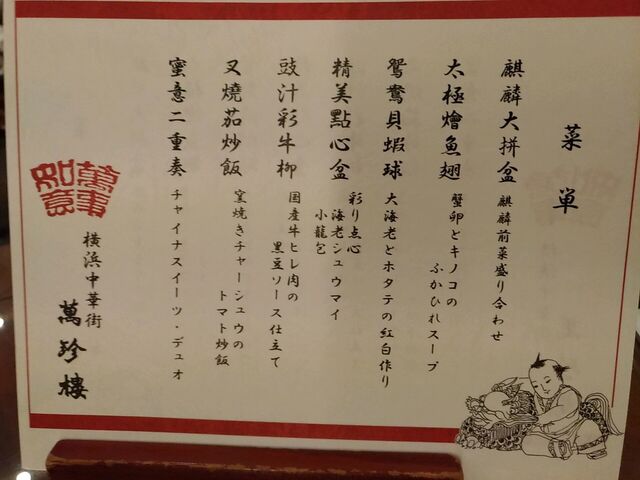 菜単
麒麟大拼盆 麒麟前菜盛り合わせ
太極燴魚翅 蟹卵とキノコの
ふかひれスープ
鴛鴦貝蝦球 大海老とホタテの紅白作り
精美點心盆 彩り点心
海老シュウマイ
小籠包
豉汁彩牛柳 国産牛ヒレ肉の
黒豆ソース仕立て
叉燒茄炒飯 窯焼きチャーシュウの
トマト炒飯
蜜意二重奏 チャイナスイーツ・デュオ
萬事如意
横浜中華街
萬珍樓